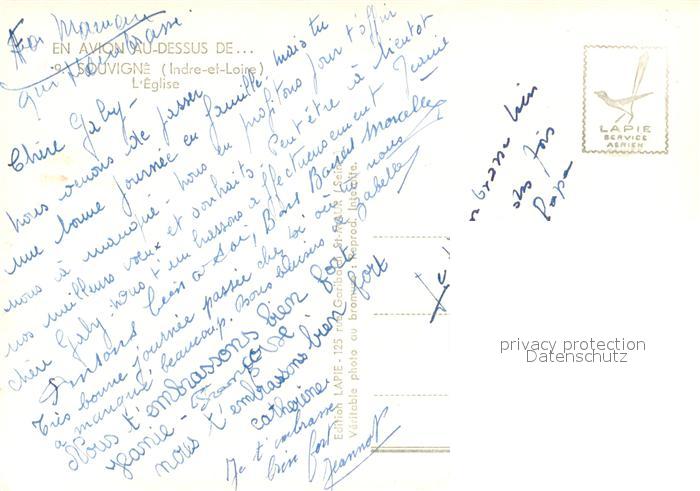 Ta Maman
qui t'embrasse
EN AVION AU-DESSUS DE...
9. SOUVIGNÉ (Indre-et-Loire)
L'Église
Chère Gaby -
Nous venons de passer
une bonne journée en famille, mais tu
nous a manqué - nous en profitons pour t'offrir
nos meilleurs voeux et souhaits Peut être à bientôt
chère Gaby. nous t'embrassons affectueusement Jeanne
bien à toi, Bons Baisers Marcelle
Très bonne journée passée chez toi où tu nous
a manqué beaucoup. Bons baisers
Nous t'embrassons bien fort
Jeanie - Françoise
nous t'embrassons bien fort
catherine
Je t'embrasse
bien fort
Jeannot
Edition LAPIE - 125 rue Garibaldi St-MAUR (Seine)
Véritable photo au bromure - Reprod. Interdite.
LAPIE
SERVICE
AERIEN
embrasse bien
des fois
Papa
privacy protection
Datenschutz